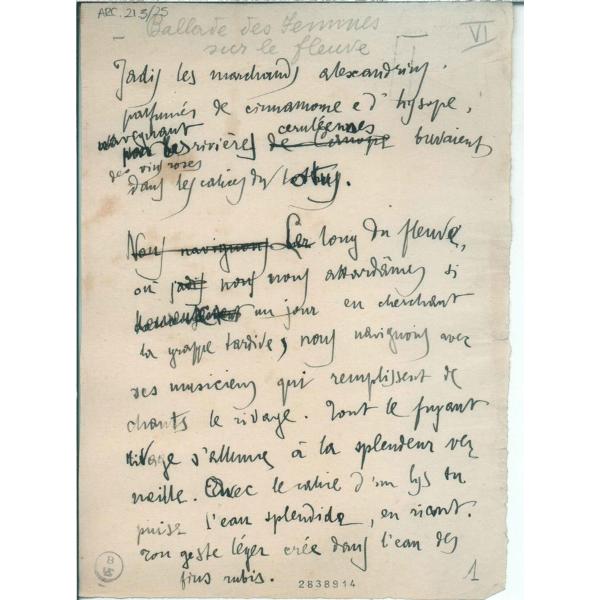 ARC. 213/25
Ballade des Femmes
sur le fleuve
VI
Jadis les marchands alexandrins.
parfumés de cinnamome et d'hysope,
naviguant
cerulèennes
par les rivières de Canope buvaient
des vins roses
dans les calices du lotus.
Nous naviguons Le long du fleuve,
où jadis nous nous attardâmes si
un jour en cherchant
la grappe tardive, nous naviguons avec
des musiciens qui remplissent de
chants le rivage. Tout le fuyant
rivage s'allume à la splendeur ver
meille. Avec le calice d'un lys tu
puises l'eau splendide, en riant.
Ton geste léger crée dans l'eau des
fins rubis.
2838914
1